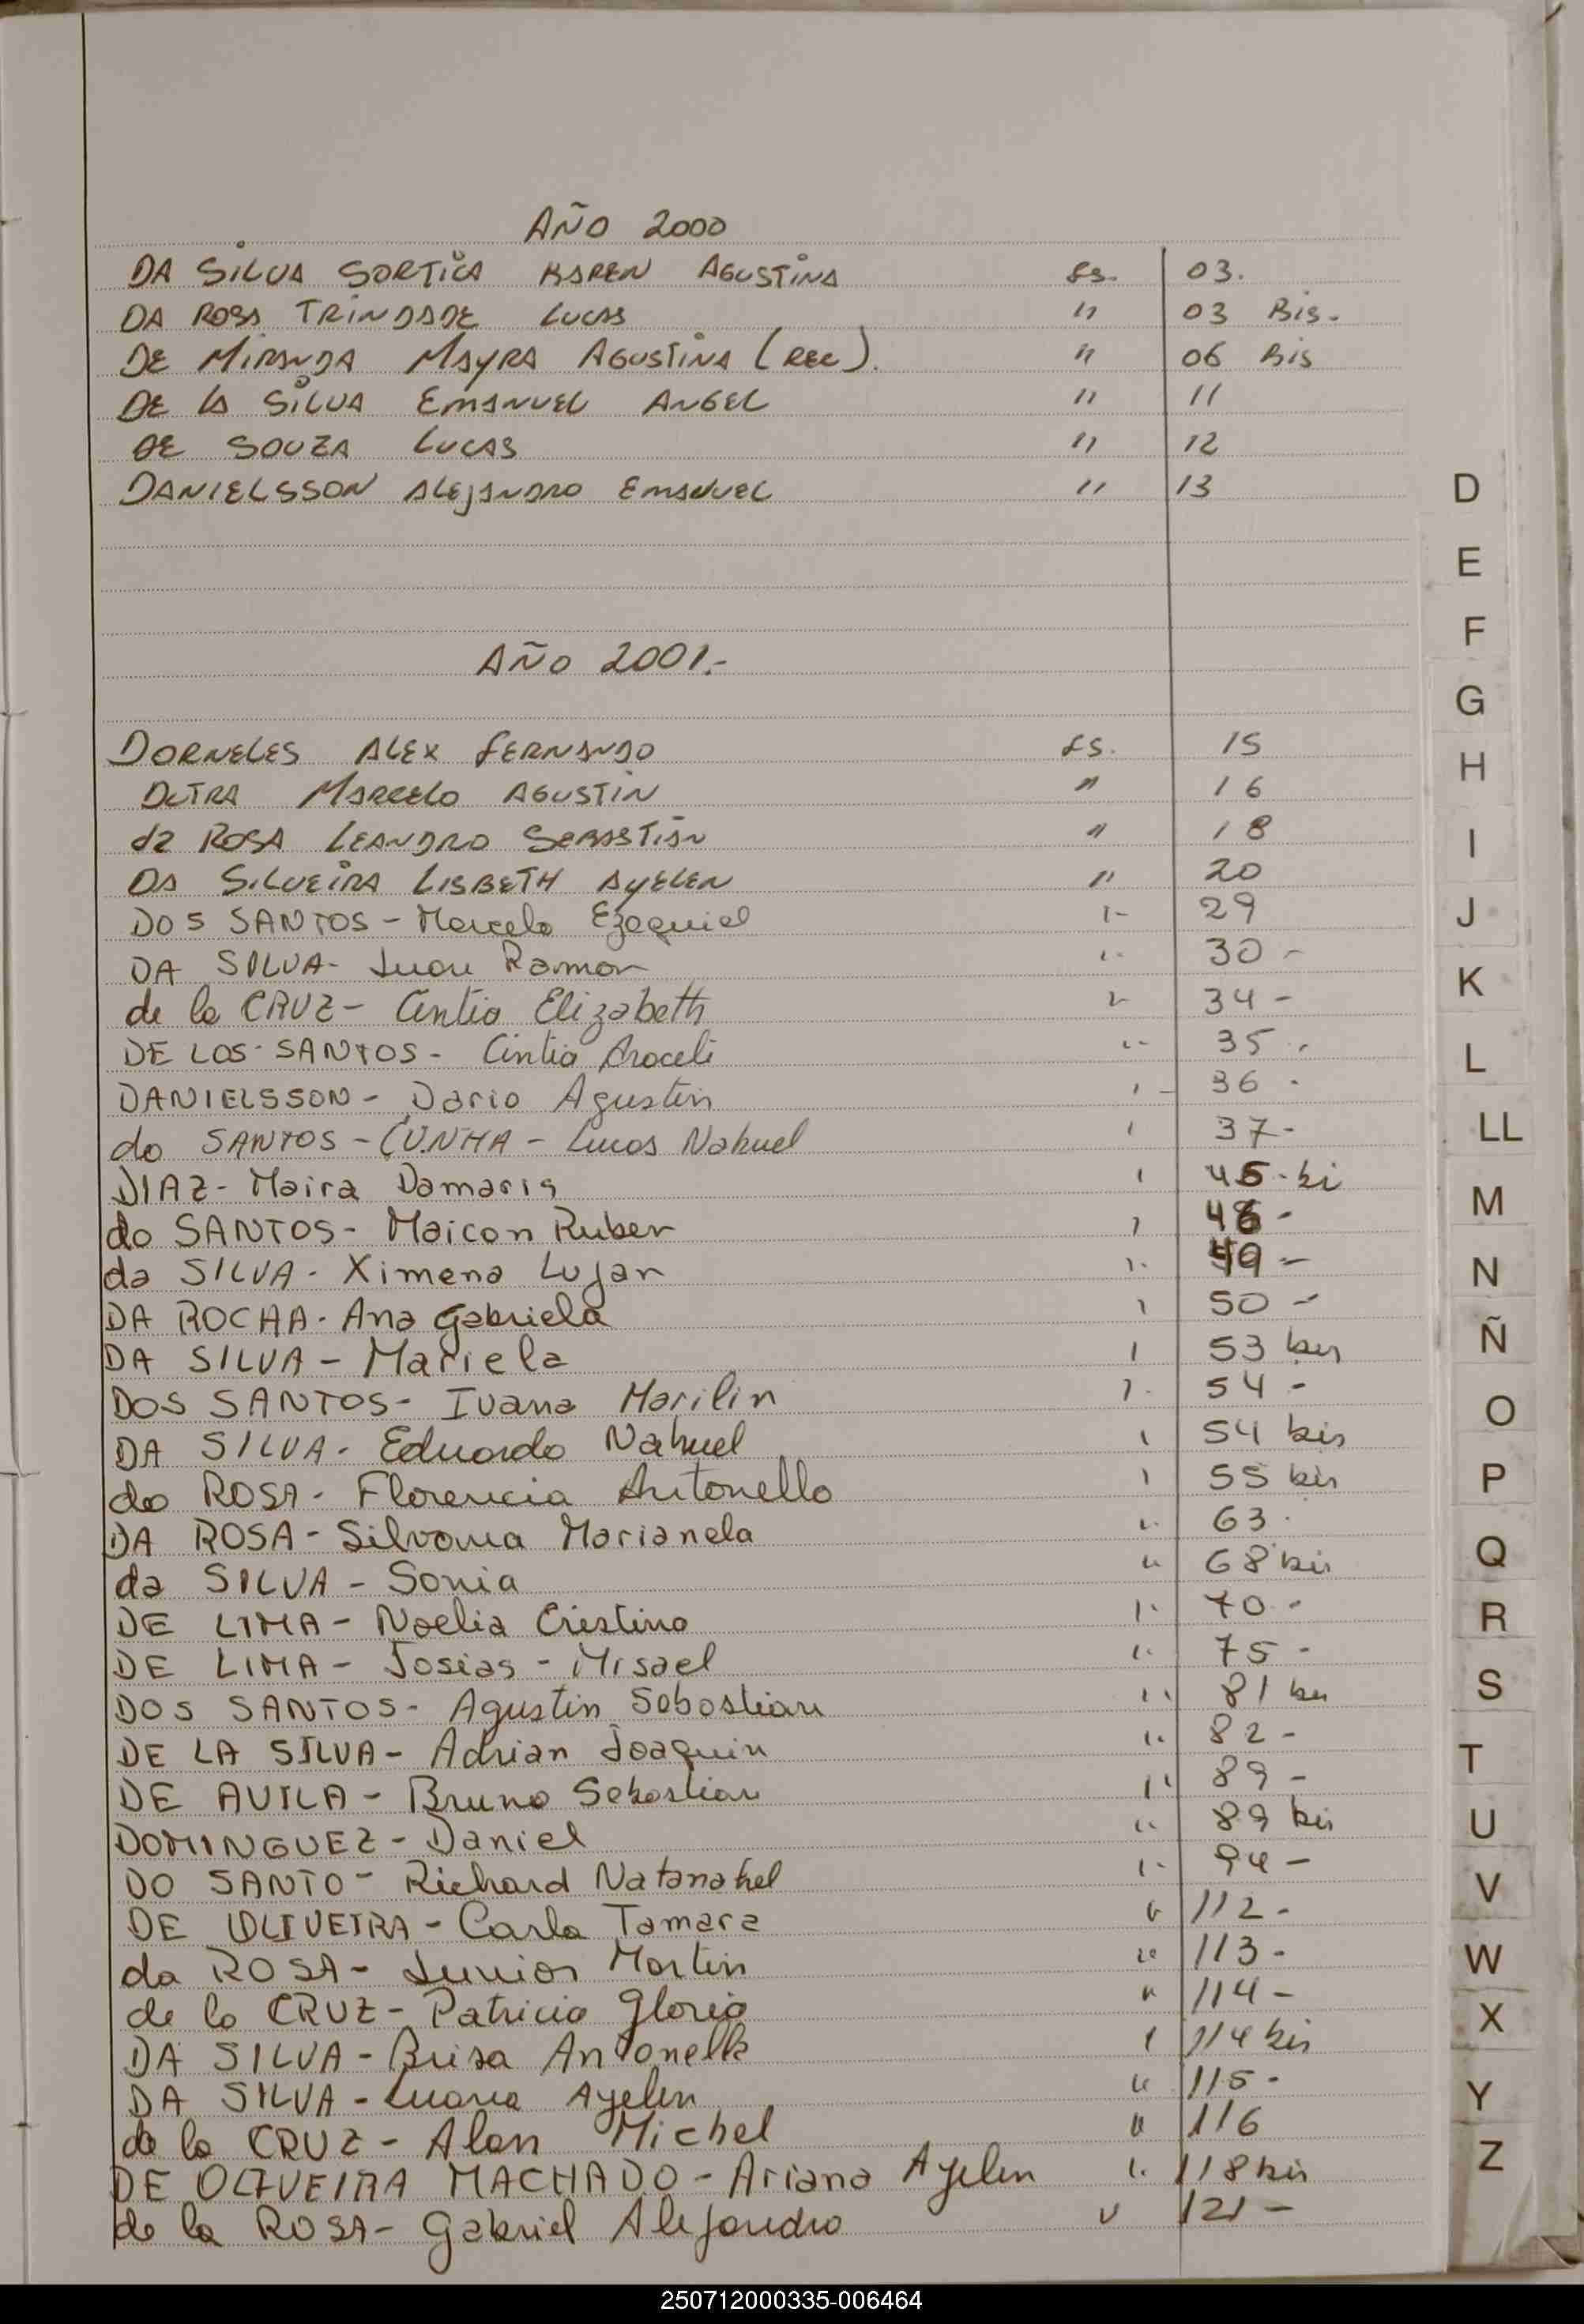 AÑO 2000
DA SILVA SORTICA KAREN AGUSTINA fs. 03.
DA ROSA TRINDADE LUCAS " 03 Bis.
DE MIRANDA MAYRA AGUSTINA (REC). " 06 Bis
DE LA SILVA EMANUEL ANGEL " 11
DE SOUZA LUCAS " 12
DANIELSSON ALEJANDRO EMANUEL " 13
AÑO 2001.-
DORNELES ALEX FERNANDO fs. 15
DUTRA MARCELO AGUSTIN " 16
da ROSA LEANDRO SEBASTIAN " 18
DA SILVEIRA LISBETH AYELEN " 20
DOS SANTOS - Marcelo Ezequiel " 29
DA SILVA - Juan Ramon " 30 -
de la CRUZ - Cintia Elizabeth " 34 -
DE LOS SANTOS - Cintia Araceli " 35 .
DANIELSSON - Dario Agustin " 36 .
do SANTOS - CUNHA - Lucas Nahuel " 37 -
DIAZ - Maira Damaris " 45 - bi
do SANTOS - Maicon Ruben " 46 -
da SILVA - Ximena Lujan " 49 -
DA ROCHA - Ana Gabriela " 50 -
DA SILVA - Mariela " 53 bis
DOS SANTOS - Ivana Marilin " 54 -
DA SILVA - Eduardo Nahuel " 54 bis
da ROSA - Florencia Antonella " 55 bis
DA ROSA - Silvana Marianela " 63 .
da SILVA - Sonia " 68 bis
DE LIMA - Noelia Cristina " 70 -
DE LIMA - Josias - Misael " 75 -
DOS SANTOS - Agustin Sebastian " 81 bis
DE LA SILVA - Adrian Joaquin " 82 -
DE AVILA - Bruno Sebastian " 89 -
DOMINGUEZ - Daniel " 89 bis
DO SANTO - Richard Natanahel " 94 -
DE OLIVEIRA - Carla Tamara " 112 -
da ROSA - Junior Martin " 113 -
de la CRUZ - Patricia Gloria " 114 -
DA SILVA - Brisa Antonella " 114 bis
DA SILVA - Luana Ayelen " 115 -
de la CRUZ - Alan Michel " 116
DE OLIVEIRA MACHADO - Ariana Ayelen " 118 bis
de la ROSA - Gabriel Alejandro " 121 -
D
E
F
G
H
I
J
K
L
LL
M
N
Ñ
O
P
Q
R
S
T
U
V
W
X
Y
Z
250712000335-006464